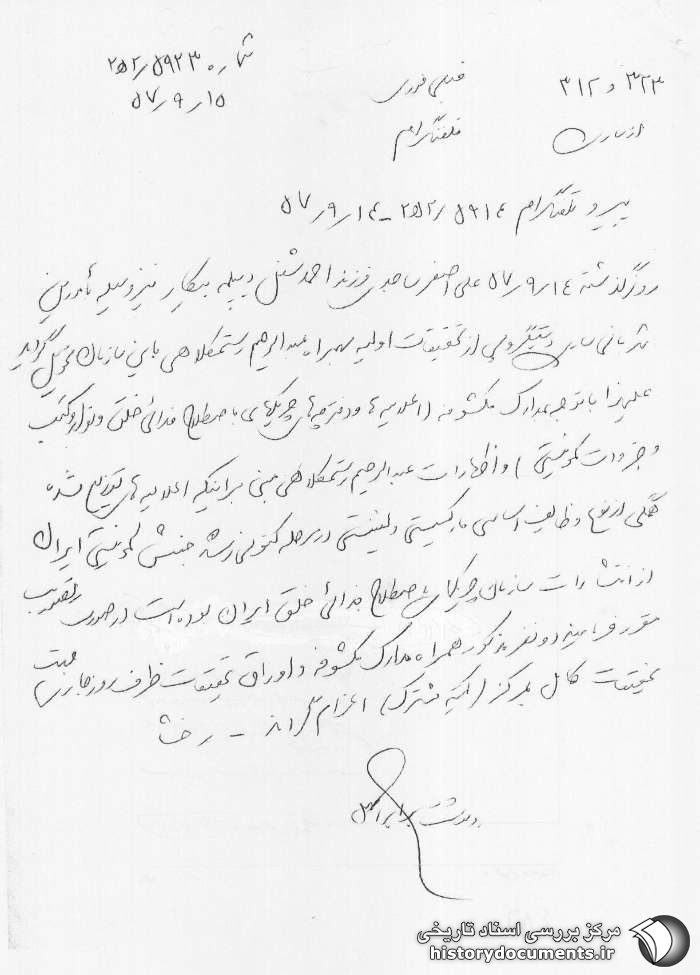 شماره ۲۵۲/۵۹۲۳
۵۷/۹/۱۵
خیلی فوری
۳۲۳ و ۳۱۲
از ساری
تلفنگرام
پیرو تلفنگرام ۲۵۲/۵۹۱۴ - ۵۷/۹/۱۴
روز گذشته ۵۷/۹/۱۴ علی اصغر ساجدی فرزند احمد شغل دیپلمه بیکار نیز وسیله مأمورین
شهربانی ساری دستگیر و پس از تحقیقات اولیه بهمراه عبدالرحیم رستمکلاهی باین سازمان تحویل گردید
علیهذا با توجه بمدارک مکشوفه (اعلامیه ها و دفترچه های چریکهای باصطلاح فدائی خلق و نوار و کتب
و جزوات کمونیستی) و اظهارات عبدالرحیم رستمکلاهی مبنی بر اینکه اعلامیه های توزیع شده
همگی از نوع وظایف اساسی مارکسیستی لنینیستی در مرحله کنونی رشد جنبش کمونیستی ایران
از انتشارات سازمان چریکهای باصطلاح فدائی خلق ایران بوده است در صورت تصویب
مقرر فرمایند دو نفر مذکور همراه مدارک مکشوفه و اوراق تحقیقات ظرف روز جاری جهت
تحقیقات کامل بمرکز (کمیته مشترک) اعزام گردند - رخشا
رونوشت برابر اصل
مرکز بررسی اسناد تاریخی
historydocuments.ir